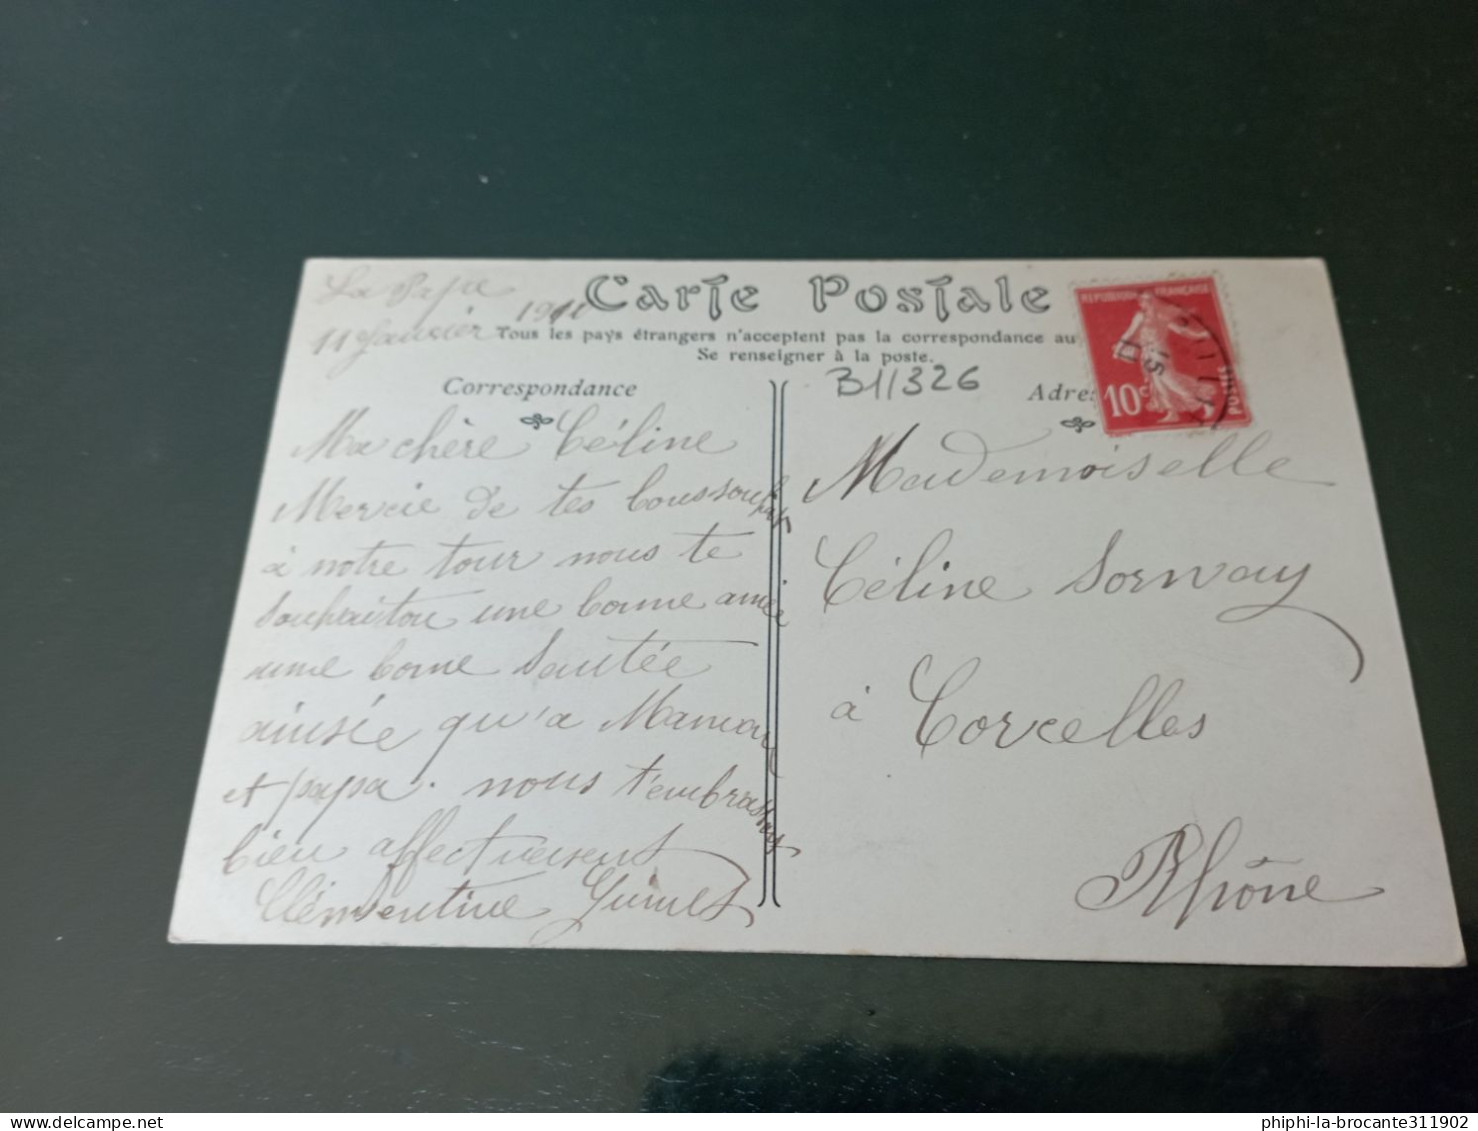 La Pape
11 Janvier 1911
Carte Postale
Tous les pays étrangers n'acceptent pas la correspondance au
Se renseigner à la poste.
B11/326
Correspondance
Ma chère Céline
Mercie de tes bons souhaits
à notre tour nous te
souhaiton une bonne année
une bonne Santée
ainsée qu'a Maman
et papa. nous t'embrassons
bien affectuesent
Clémentine
Adres
REPUBLIQUE FRANÇAISE
10c
POSTES
Mademoiselle
Céline Sornay
à Corcelles
Rhône
delcampe.net
phiphi-la-brocante311902